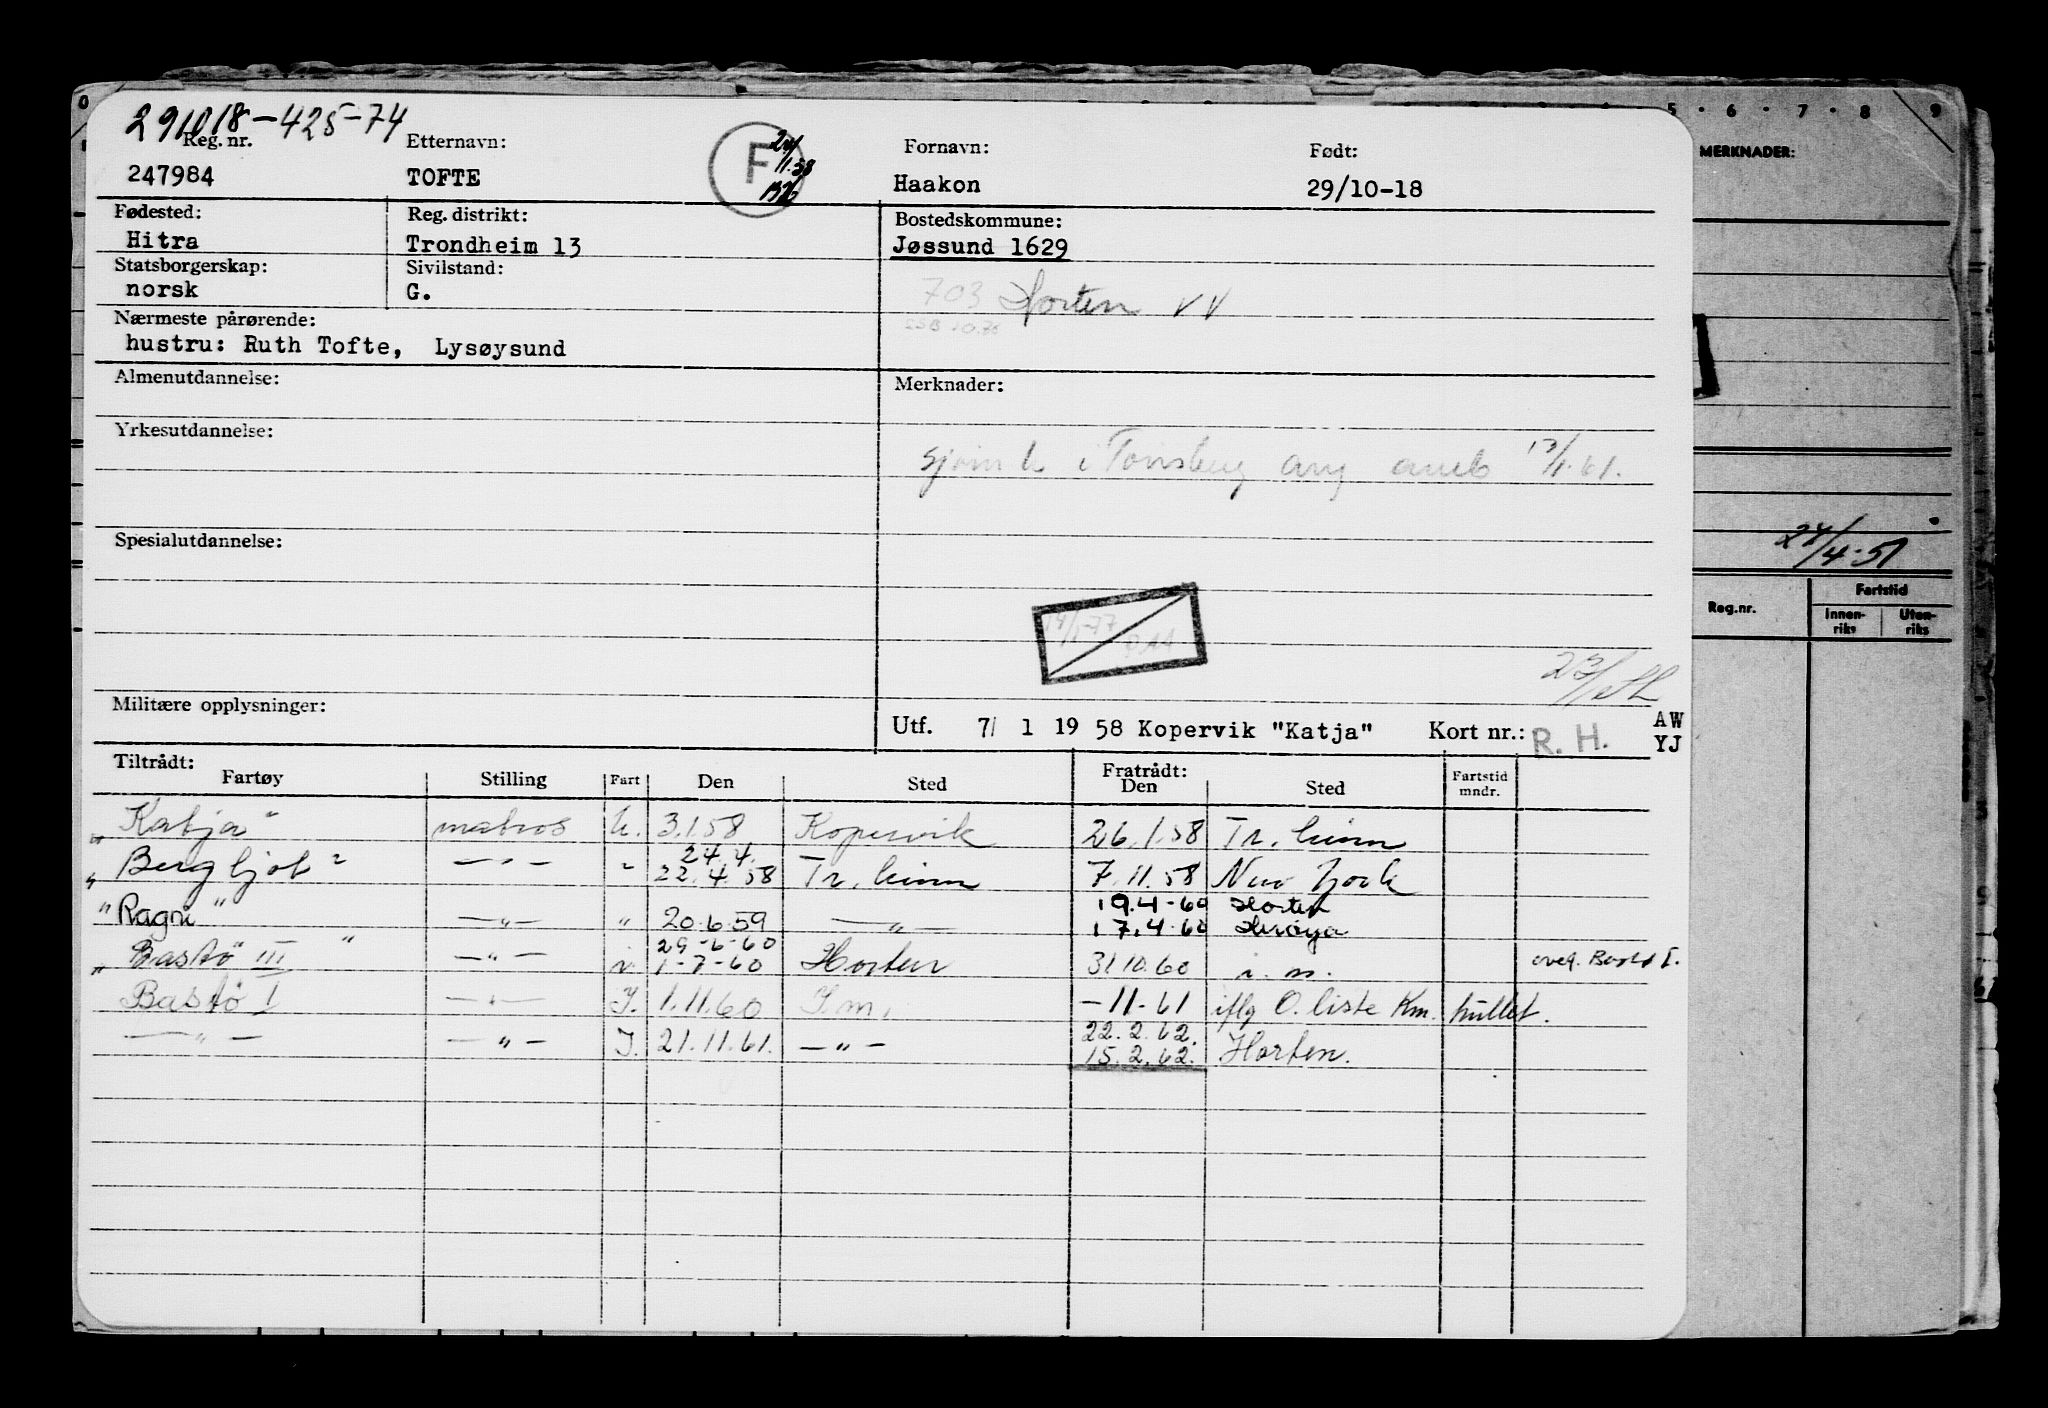 291018-425-74
Reg. nr. Etternavn: Fornavn: Født:
247984 TOFTE F 24/1.58 Haakon 29/10-18
Fødested: Reg. distrikt: Bostedskommune:
Hitra Trondheim 13 Jøssund 1629
Statsborgerskap: Sivilstand:
norsk G. 703 Horten VV
Nærmeste pårørende:
hustru: Ruth Tofte, Lysøysund
Almenutdannelse: Merknader:
Yrkesutdannelse:
i Tønsberg 13/1.61.
Spesialutdannelse:
14/1-77
Militære opplysninger:
Utf. 7/ 1 19 58 Kopervik "Katja" Kort nr.: R. H. AW
YJ
Tiltrådt: Fratrådt:
Fartøy Stilling Fart Den Sted Den Sted Fartstid mndr.
"Katja" matros U. 3.1.58 Kopervik 26.1.58 Tr.heim
24.4.
"Bergljot" -"- " 22.4.58 Tr.heim 7.11.58 New York
19.4-60 Horten
"Ragni" -"- " 20.6.59 -"- 17.4.60 Herøya
29-6-60
"Bastø III" -"- 1-7-60 Horten 31.10.60 i.m. overf. Bastø I.
Bastø I -"- I. 1.11.60 I.m. -11-61 iflg O.liste Km. hullet.
22.2.62.
-"- -"- I. 21.11.61. -"- 15.2.62. Horten.
0 5 · 6 · 7 · 8 9
MERKNADER:
24/4-51
Reg.nr. Fartstid
Innen-riks Uten-riks